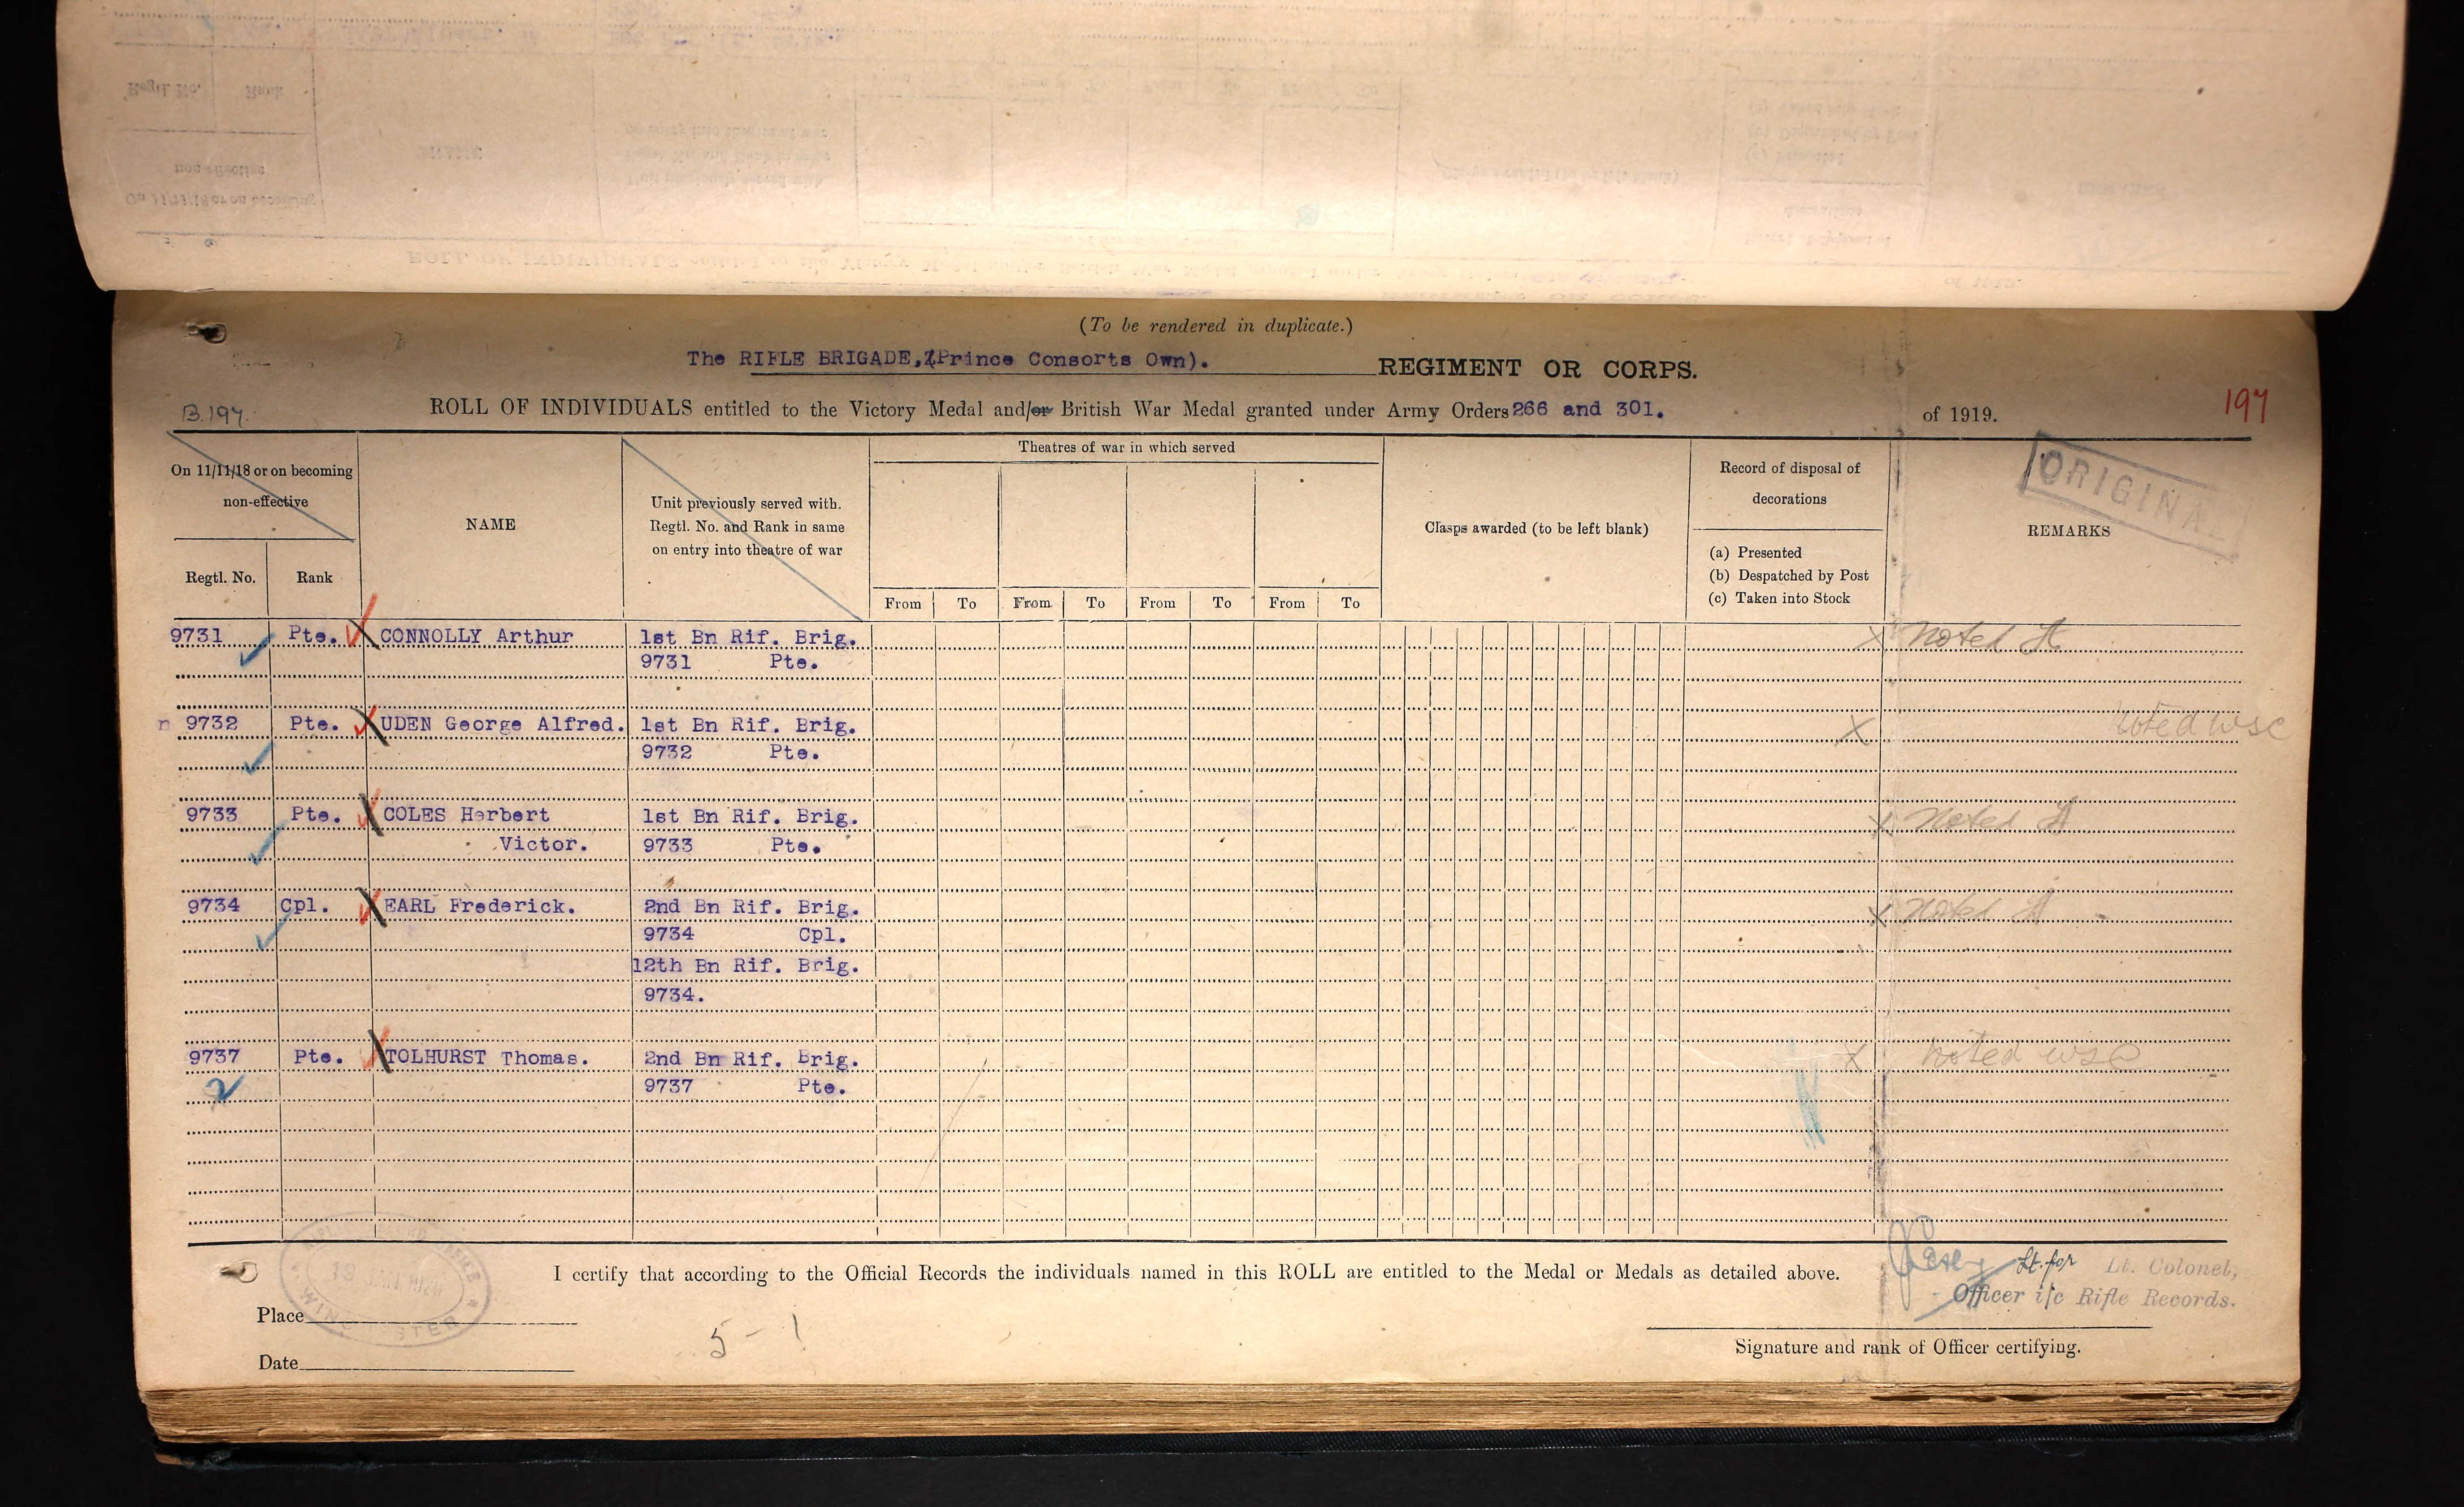 (To be rendered in duplicate.)
The RIFLE BRIGADE,(Prince Consorts Own). REGIMENT OR CORPS.
B.197. ROLL OF INDIVIDUALS entitled to the Victory Medal and/or British War Medal granted under Army Orders 266 and 301. of 1919. 197
ORIGINAL
Theatres of war in which served
On 11/11/18 or on becoming
non-effective
NAME
Unit previously served with.
Regtl. No. and Rank in same
on entry into theatre of war
Clasps awarded (to be left blank)
Record of disposal of
decorations
(a) Presented
(b) Despatched by Post
(c) Taken into Stock
REMARKS
Regtl. No. Rank From To From To From To From To
9731 Pte. CONNOLLY Arthur 1st Bn Rif. Brig. X Noted
9731 Pte.
n 9732 Pte. UDEN George Alfred. 1st Bn Rif. Brig. X Noted wsc
9732 Pte.
9733 Pte. COLES Herbert 1st Bn Rif. Brig. X Noted
Victor. 9733 Pte.
9734 Cpl. EARL Frederick. 2nd Bn Rif. Brig. X Noted
9734 Cpl.
12th Bn Rif. Brig.
9734.
9737 Pte. TOLHURST Thomas. 2nd Bn Rif. Brig. X Noted wsc
2 9737 Pte.
I certify that according to the Official Records the individuals named in this ROLL are entitled to the Medal or Medals as detailed above. Lt. for Lt. Colonel,
Officer i/c Rifle Records.
Place
5-1
Signature and rank of Officer certifying.
Date